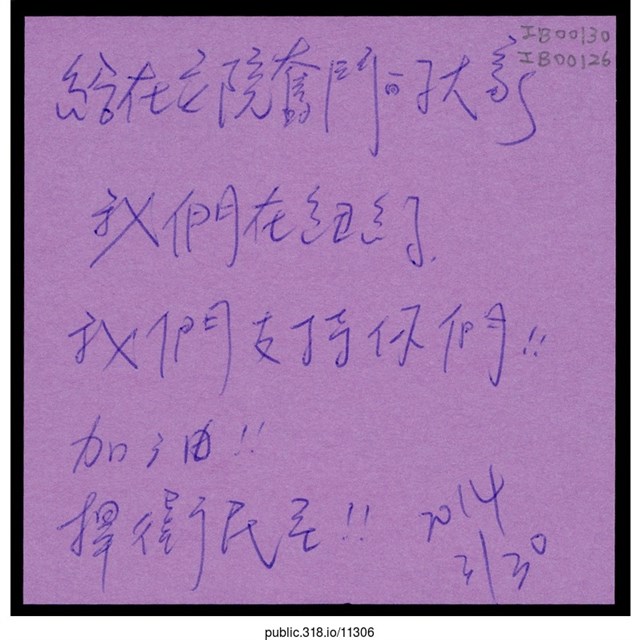 IB00130
IB00126
給在立院奮鬥的大家
我們在紐約
我們支持你們!!
加油!!
捍衛民主!!
2014
3/30
public.318.io/11306